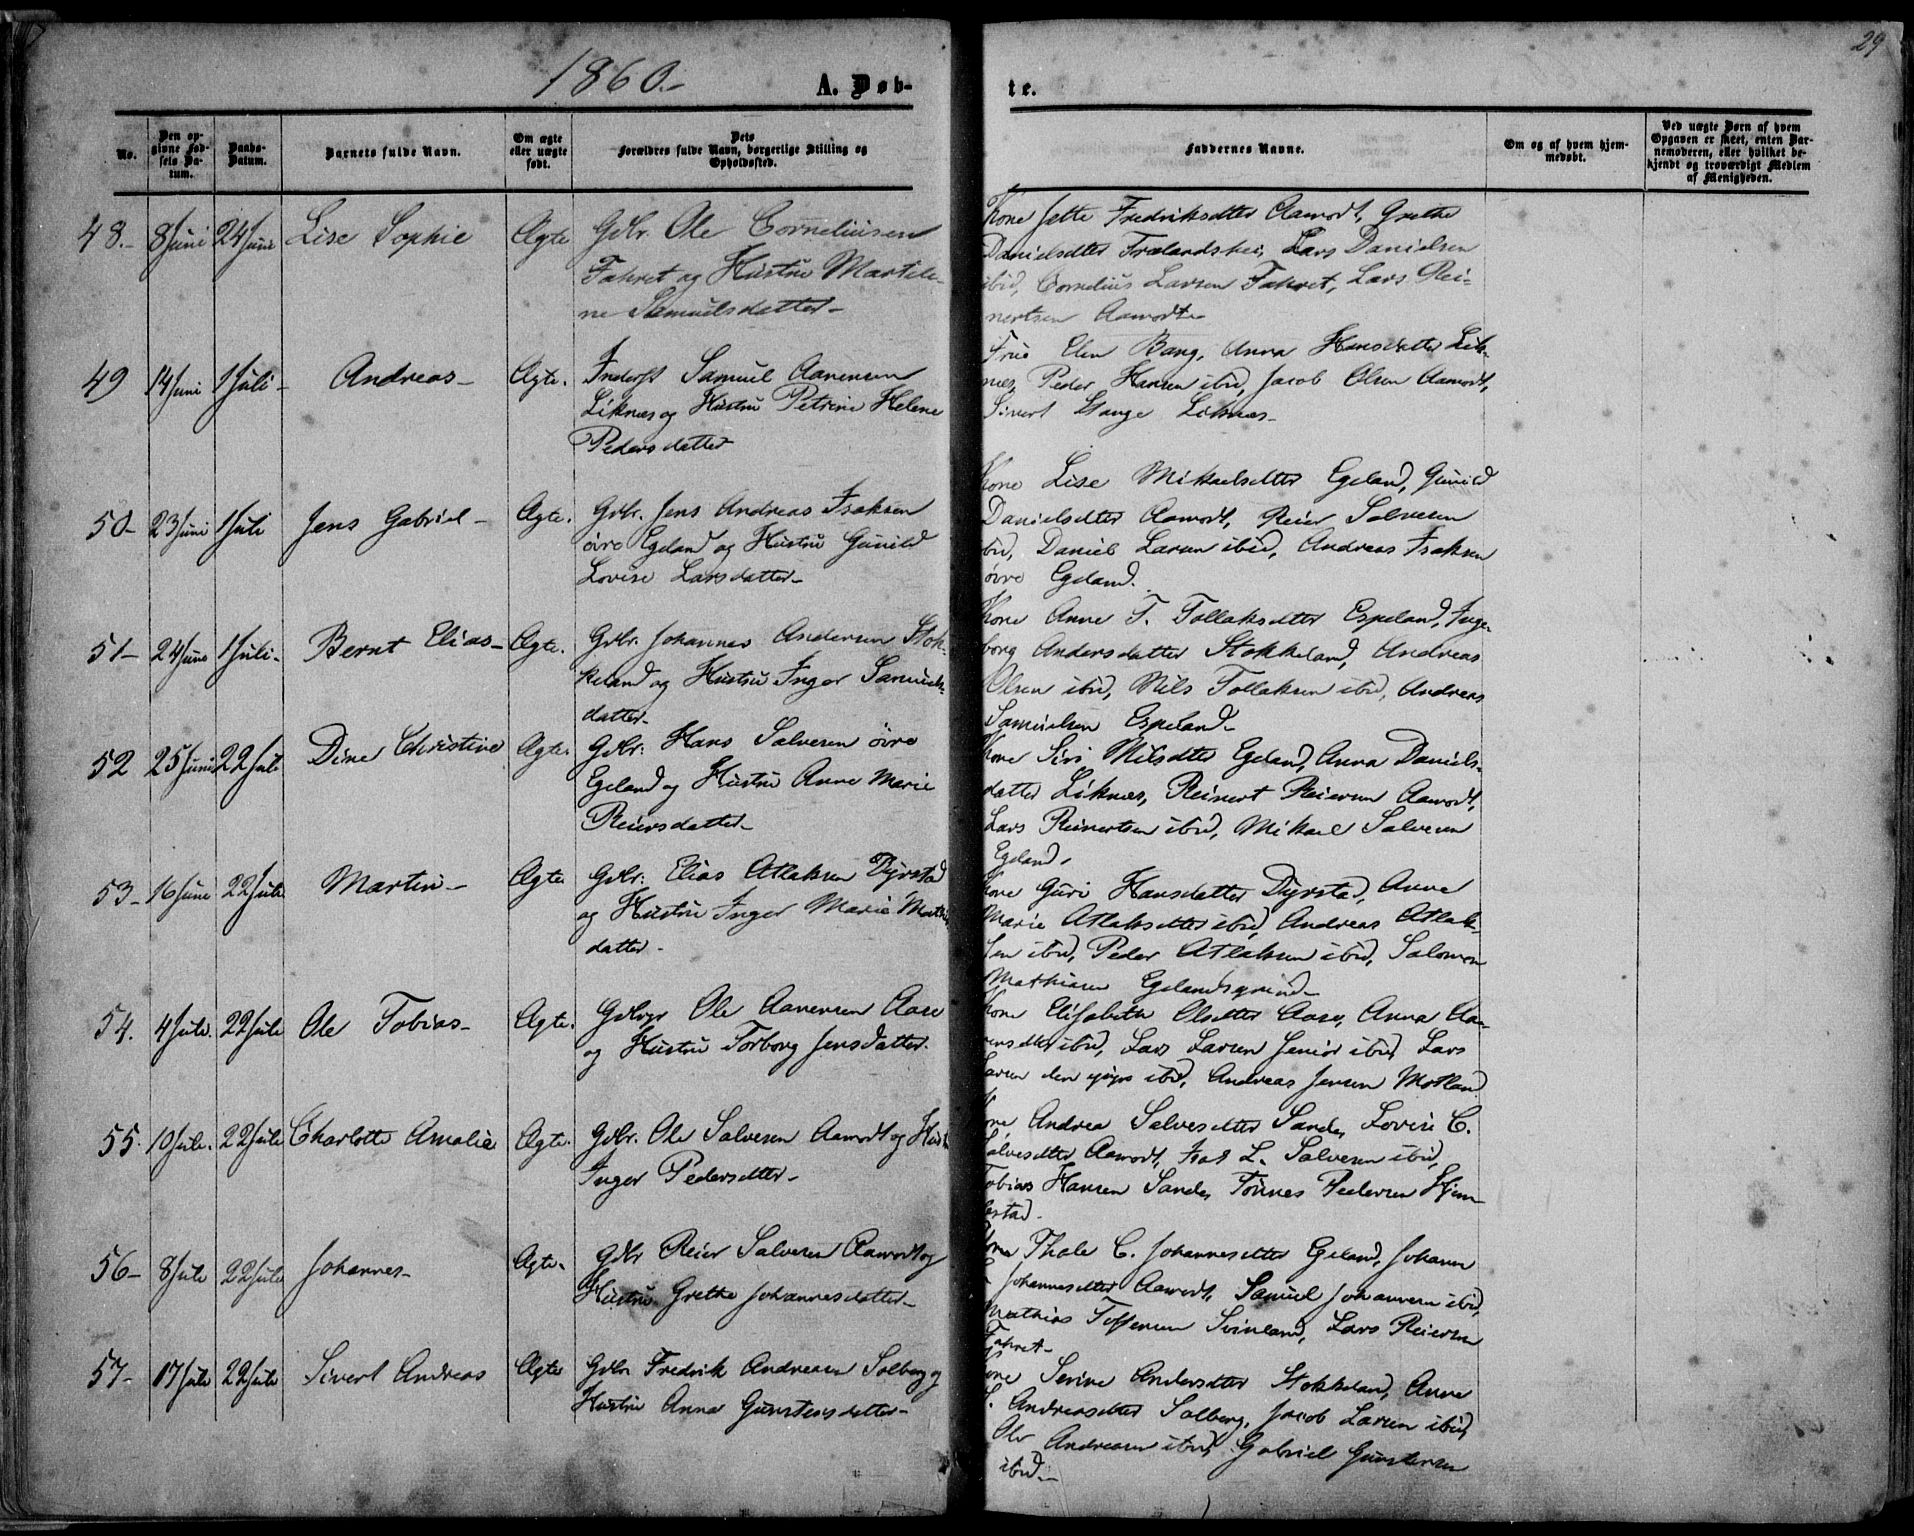 29
1860.-
A. Døb-
te.
No.
Den op-
givne Fød-
sels Da-
tum.
Daabs-
Datum.
Barnets fulde Navn.
Om ægte
eller uægte
født.
Dets
Forældres fulde Navn, borgerlige Stilling og
Opholdssted.
Faddernes Navne.
Om og af hvem hjem-
medøbt.
Ved uægte Børn af hvem
Opgaven er skeet, enten Bar-
nemoderen, eller hvilket be-
kjendt og troværdigt Medlem
af Menigheden.
48.- 8 Juni 24 Juni Lise Sophie Ægte Gdbr. Ole Corneliusen
Faret og Hustru
ne Samuelsdatter-
Kone Jette Fredriksdtter Aamodt, Grethe
Danielsdtter Frælandshei, Lars Danielsen
ibid, Cornelius Larsen Faret, Lars Rei-
nertsen Aamodt-
49 14 Juni 1 Juli- Andreas- Ægte. Inderst Samuel Aanensen
Liknes og Hustru Petrine Helene
Pedersdatter
Frue Elen Bang, Anna Hansdatter Lik-
nes, Peder Hansen ibid, Jacob Olsen Aamodt,
Sivert Stange Liknes-
50- 23 Juni 1 Juli Jens Gabriel- Ægte. Gdbr. Jens Andreas Isaksen
øvre Egeland og Hustru Gunild
Lovise Larsdatter-
Kone Lise Mikaelsdtter Egeland, Gunild
Danielsdtter Aamodt, Reier Salvesen
ibid, Daniel Larsen ibid, Andreas Isaksen
øvre Egeland.
51- 24 Juni 1 Juli- Bernt Elias- Ægte. Gdbr. Johannes Andersen Stok-
keland og Hustru Inger Samuels-
datter-
Kone Anne T. Tollaksdtter Espeland, Inge-
borg Andersdatter Stokkeland, Andreas
Olsen ibid, Nils Tollaksen ibid, Andreas
Samuelsen Espeland-
52 25 Juni 22 Juli Dine Christine Ægte. Gdbr: Hans Salvesen øvre
Egeland og Hustru Anne Marie
Reiersdatter-
Kone Siri Nilsdtter Egeland, Anna Daniels-
datter Liknes, Reinert Reiersen Aamodt,
Lars Reinertsen ibid, Mikael Salvesen
Egeland.
53- 16 Juni 22 Juli Martin- Ægte Gdbr: Elias Atlaksen Dyrstad
og Hustru Inger Marie
datter-
Kone Guri Hansdatter Dyrstad, Anne
Marie Atlaksdtter ibid, Andreas Atlak-
sen ibid, Peder Atlaksen ibid, Salomon
Mathiasen Egelandsgrind-
54. 4 Juli. 22 Juli Ole Tobias- Ægte. Ole Aanensen Aase
og Hustru Torborg Jensdatter-
Kone Elisabeth Olsdtter Aase, Anna Aa-
nensdtter ibid, Lars Larsen Senior ibid, Lars
Larsen den yngre ibid, Andreas Jensen Motland
55. 10 Juli. 22 Juli Charlotte Amalie Ægte. Gdbr. Ole Salvesen Aamodt og Hustru
Inger Pedersdtter-
Kone Andrea Salvesdtter Sande, Lovise C.
Salvesdtter Aamodt, L. Salvesen ibid,
Tobias Hansen Sande, Tønnes Pedersen
56- 8 Juli 22 Juli Johannes- Ægte- Gdbr Reier Salvesen Aamodt og
Hustru Grethe Johannesdatter-
Kone Thale C. Johannesdtter Egeland, Johanne
Johannesdtter Aamodt, Samuel Johannesen ibid,
Mathias Toffensen Svinland, Lars Reiersen
Faret-
57- 17 Juli 22 Juli Sivert Andreas Ægte Gdbr. Fredrik Andreasen Solberg og
Hustru Anna Gunstensdatter-
Kone Serine Andersdtter Stokkeland, Anne
S. Andreasdtter Solberg, Jacob Larsen ibid,
Ole Andreasen ibid, Gabriel Gunstensen
ibid-